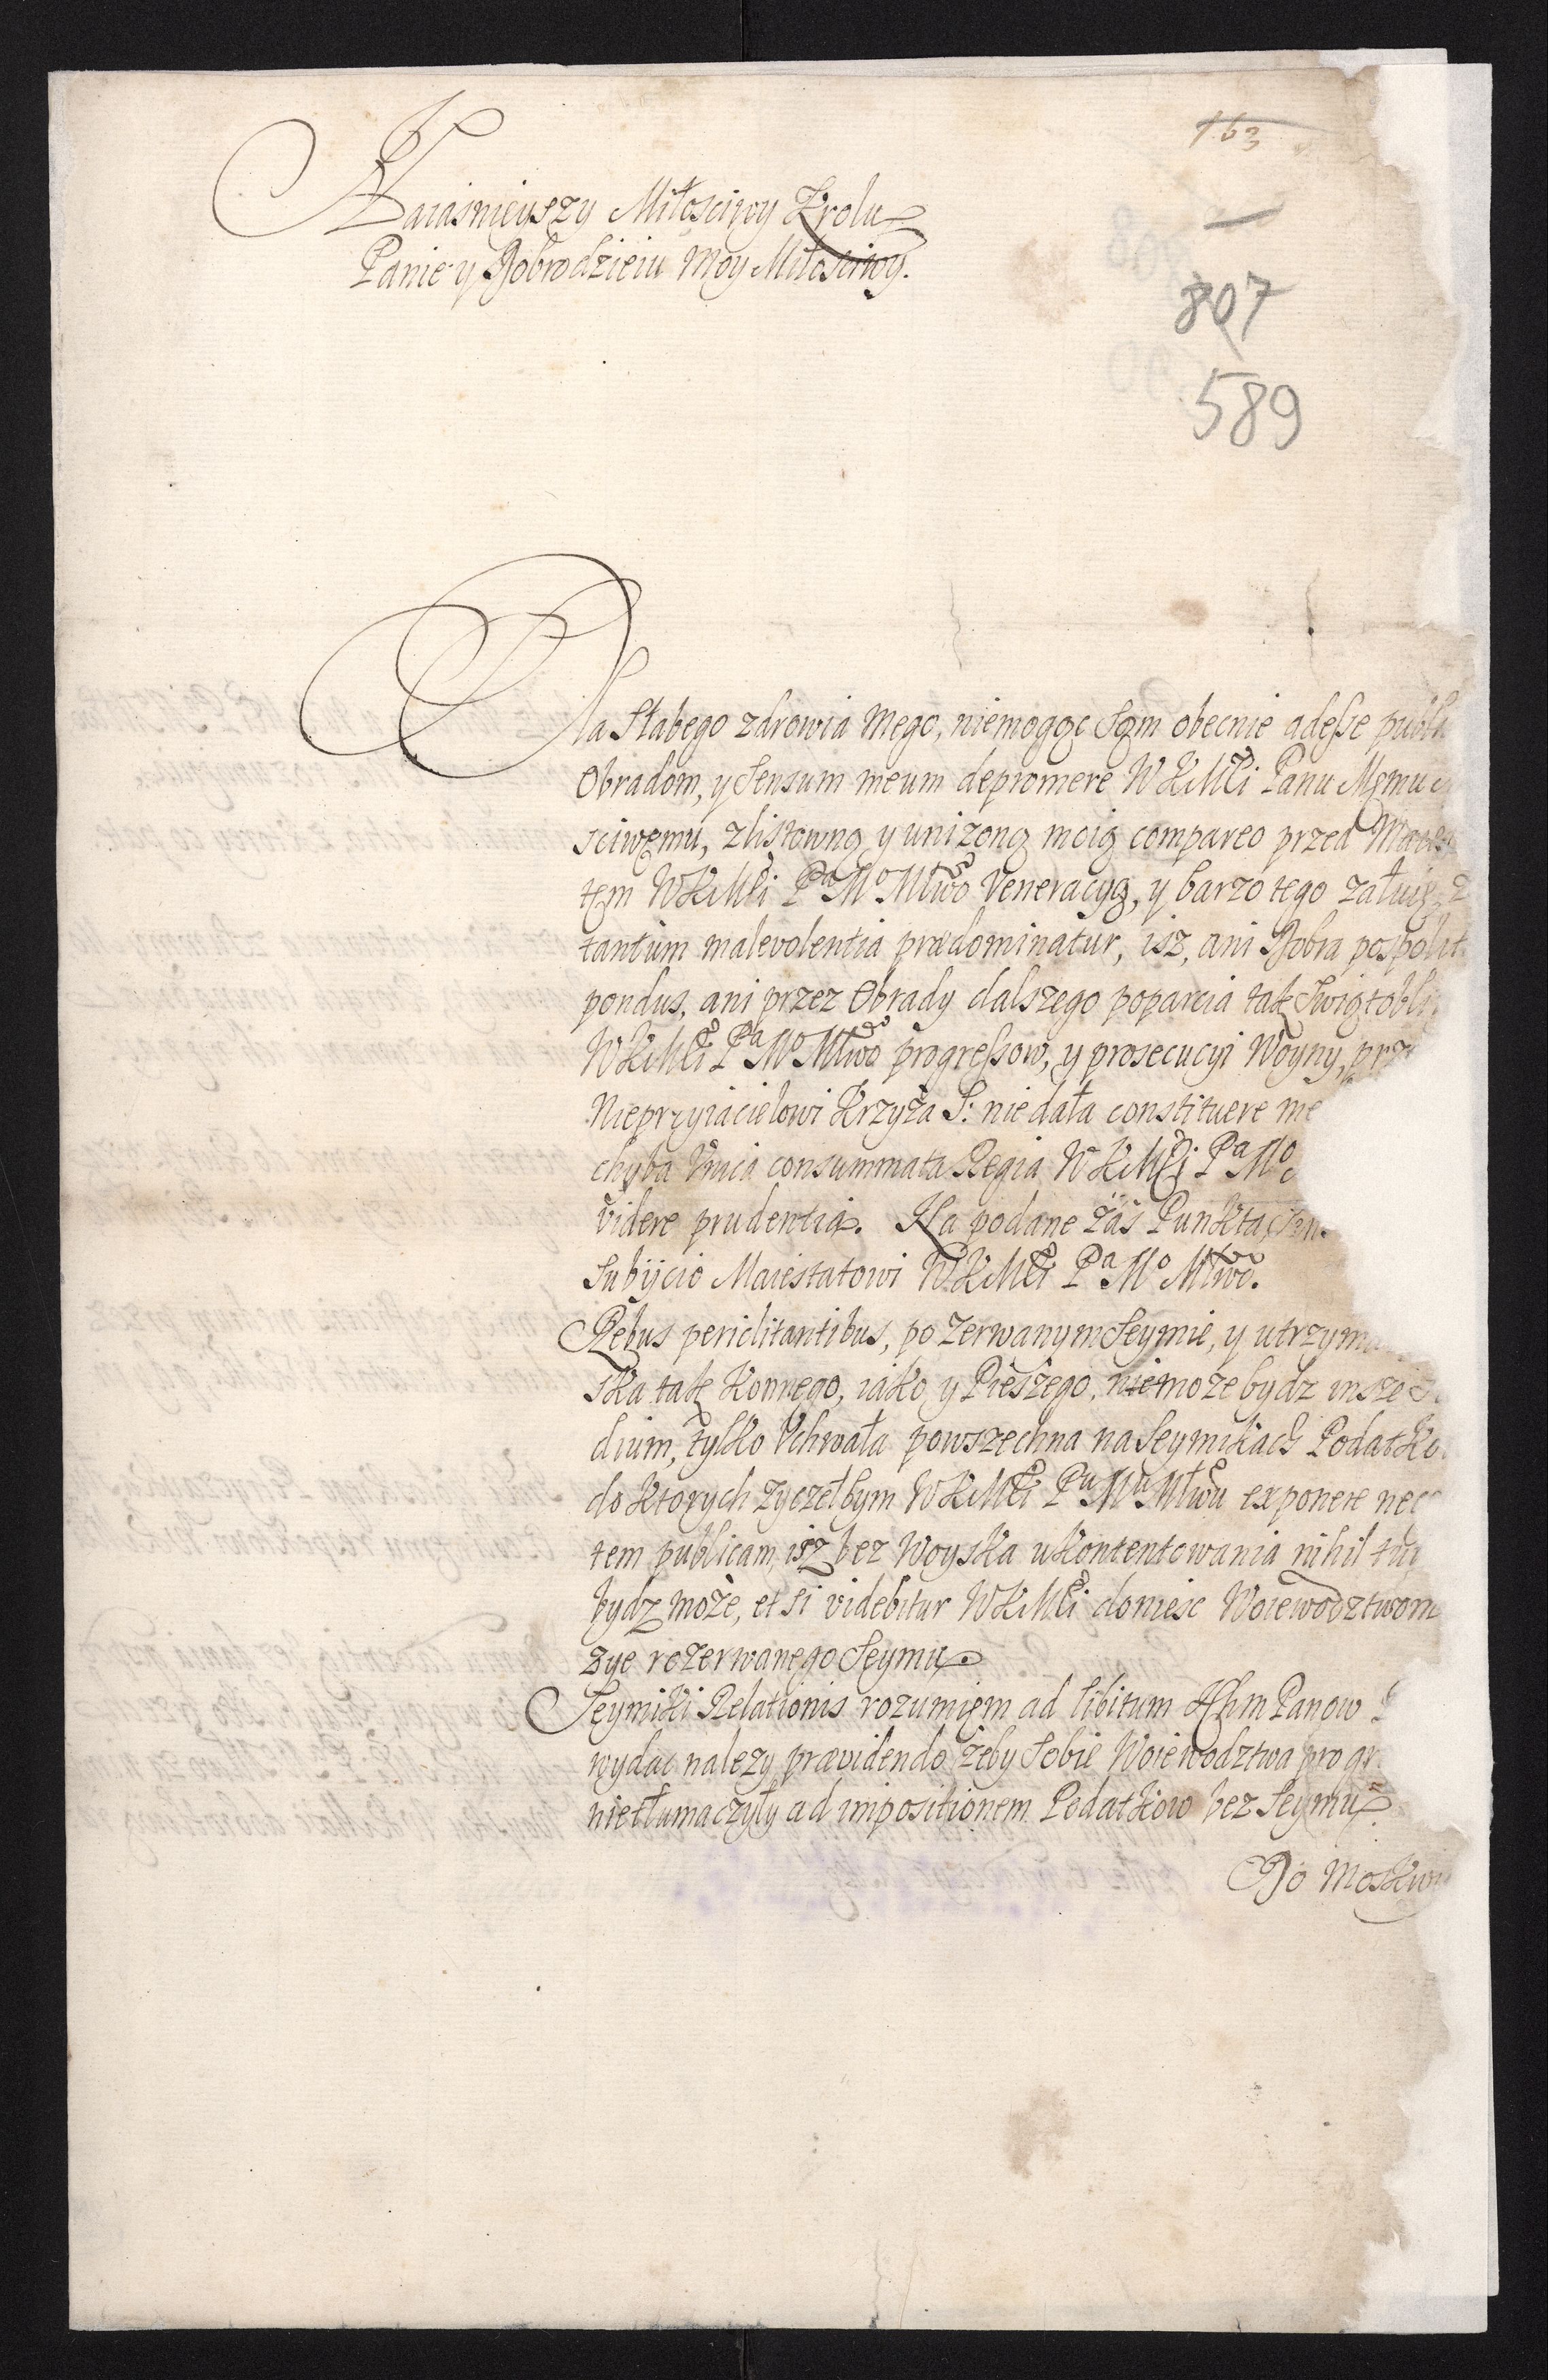 163
Naiaśnieyszy Miłosciwy Krolu
Panie y Dobrodzieiu Moy Miłosciwy.
807
589
Dla Słabego zdrowia Mego, niemogąc Sąm obecnie adesse publi
Obradom, y Sensum meum depromere WKMŚCi Panu Memu
sciwęmu, zlistowną y uniżoną moią compareo przed Maies
tęm WKMŚCi Pa Mo Młwo Veneracyą, y barzo tego załuię,
tantum malevolentia prædominatur, isz, ani Dobra pospolit
pondus, ani przez Obrady dalszego poparcia tak Swiątobli
WKMŚCi Pa Mo Młwo progressow, y prosecucyi Woyny, prz
Nieprzyiacielowi Krzyża S: niedała constituere me
chyba Vnica consummata Regia WKMŚCi Pa Mo
videre prudentia. Na podane zaś Punkta,
Subijcio Maiestatowi WKMŚCi Pa Mo Młwo.
Rebus periclitantibus, po Zerwanym Seymie, y utrzym
ska tak Konnego, iako y Pieszego, niemoże bydz insze
dium, tylko Vchwała powszechna na Seymikach Podatko
do ktorych zyczełbym WKMŚCi Pu Mu Młwu exponere nec
tem publicam, isz bez Woyska ukontentowania nihil tu
bydz może, et si videbitur WKMŚCi doniesc Woiewodztwom
zye rozerwanego Seymu.
Seymiki Relationis rozumięm ad libitum Ichm Panow
wydac nalezy prævidendo żeby Sobie Woiewodztwa pro gr
nietłumaczyły ad impositionem Podatkow bez Seymu.
Do Moskwy